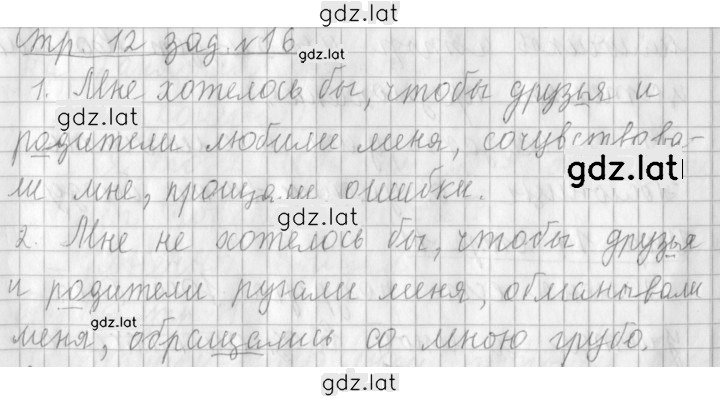 gdz.lat
стр. 12 зад. №16
gdz.lat
1. Мне хотелось бы, чтобы друзья и
gdz.lat
родители любили меня, сочувствова-
gdz.lat
ли мне, прощали ошибки.
gdz.lat
2. Мне не хотелось бы, чтобы друзья
и родители ругали меня, обманывали
gdz.lat
меня, обращались со мною грубо.
gdz.lat